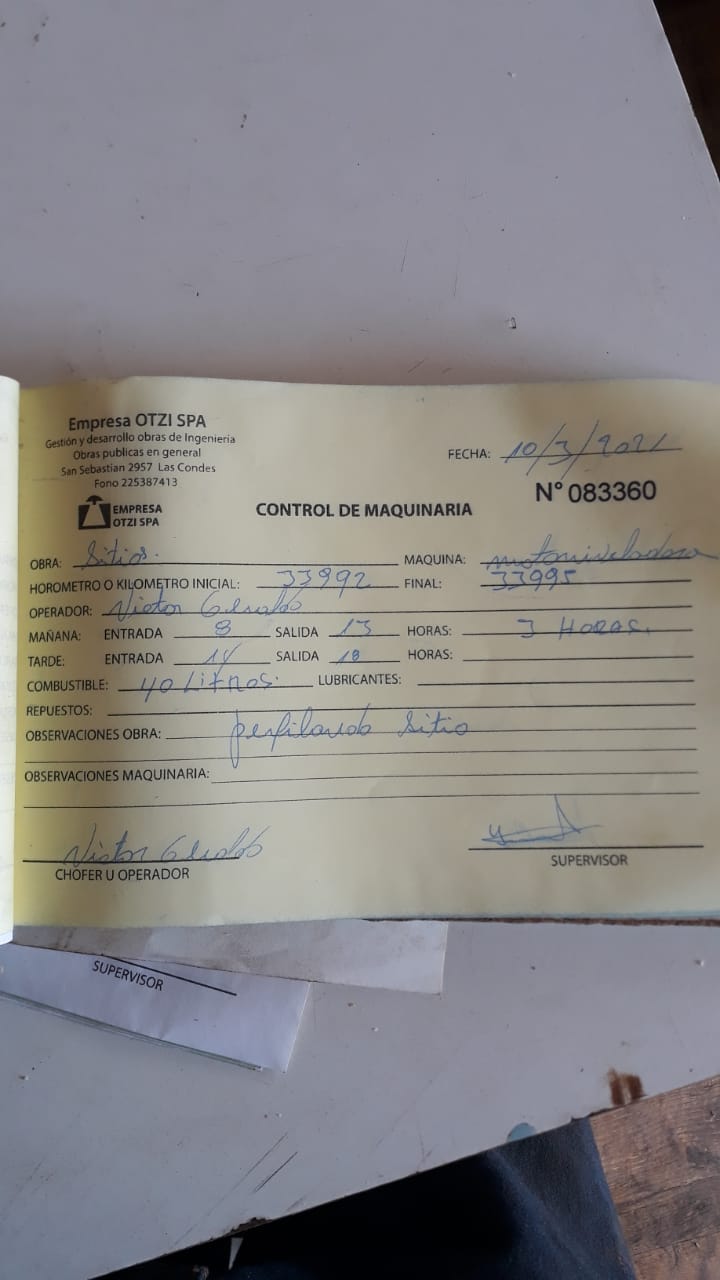 Empresa OTZI SPA
Gestión y desarrollo obras de Ingenieria
Obras publicas en general
San Sebastian 2957 Las Condes
Fono 225387413
EMPRESA
OTZI SPA
CONTROL DE MAQUINARIA
FECHA: 10/3/2021
N° 083360
OBRA: Sitios. MAQUINA: motoniveladora
HOROMETRO O KILOMETRO INICIAL: 33992 FINAL: 33995
OPERADOR: Victor Geraldo
MAÑANA: ENTRADA 8 SALIDA 13 HORAS: 3 HORAS.
TARDE: ENTRADA 14 SALIDA 18 HORAS:
COMBUSTIBLE: 40 Litros. LUBRICANTES:
REPUESTOS:
OBSERVACIONES OBRA: perfilando Sitio
OBSERVACIONES MAQUINARIA:
Victor Geraldo
CHOFER U OPERADOR
SUPERVISOR
SUPERVISOR